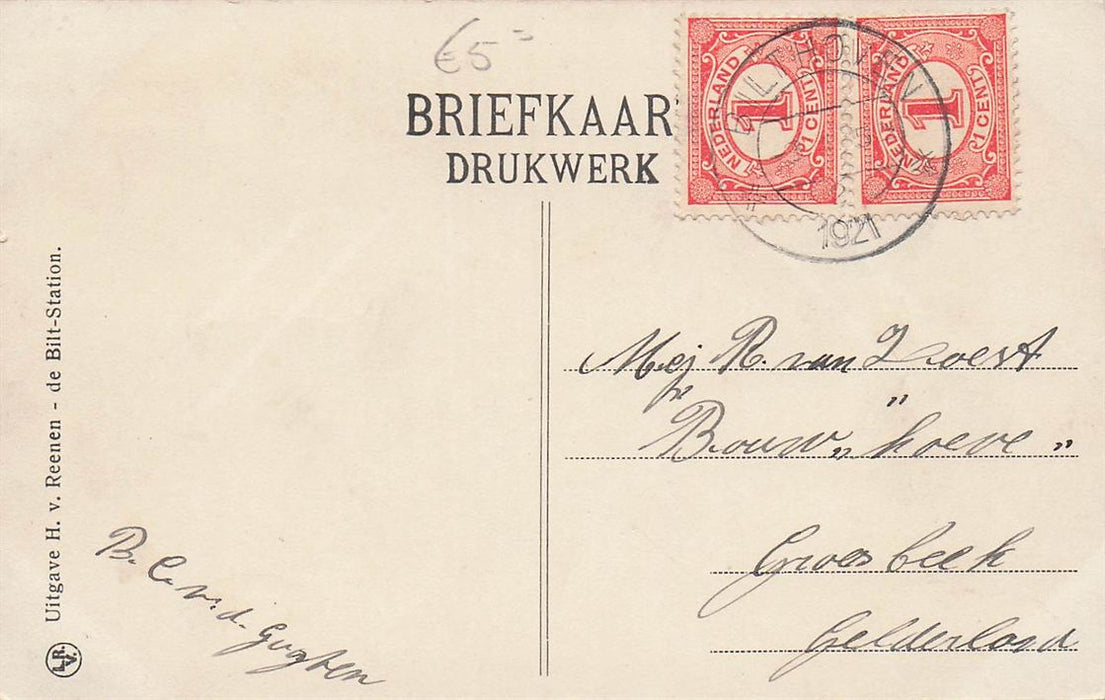 €5=
BRIEFKAAR
DRUKWERK
NEDERLAND
1
1 CENT
NEDERLAND
1
1 CENT
BILTHOVEN
1921
Uitgave H. v. Reenen - de Bilt-Station.
L.R.
V.
Mej R. van Zoest
Bouw„ hoeve „
Groesbeek
Gelderland
B. C. v. d.